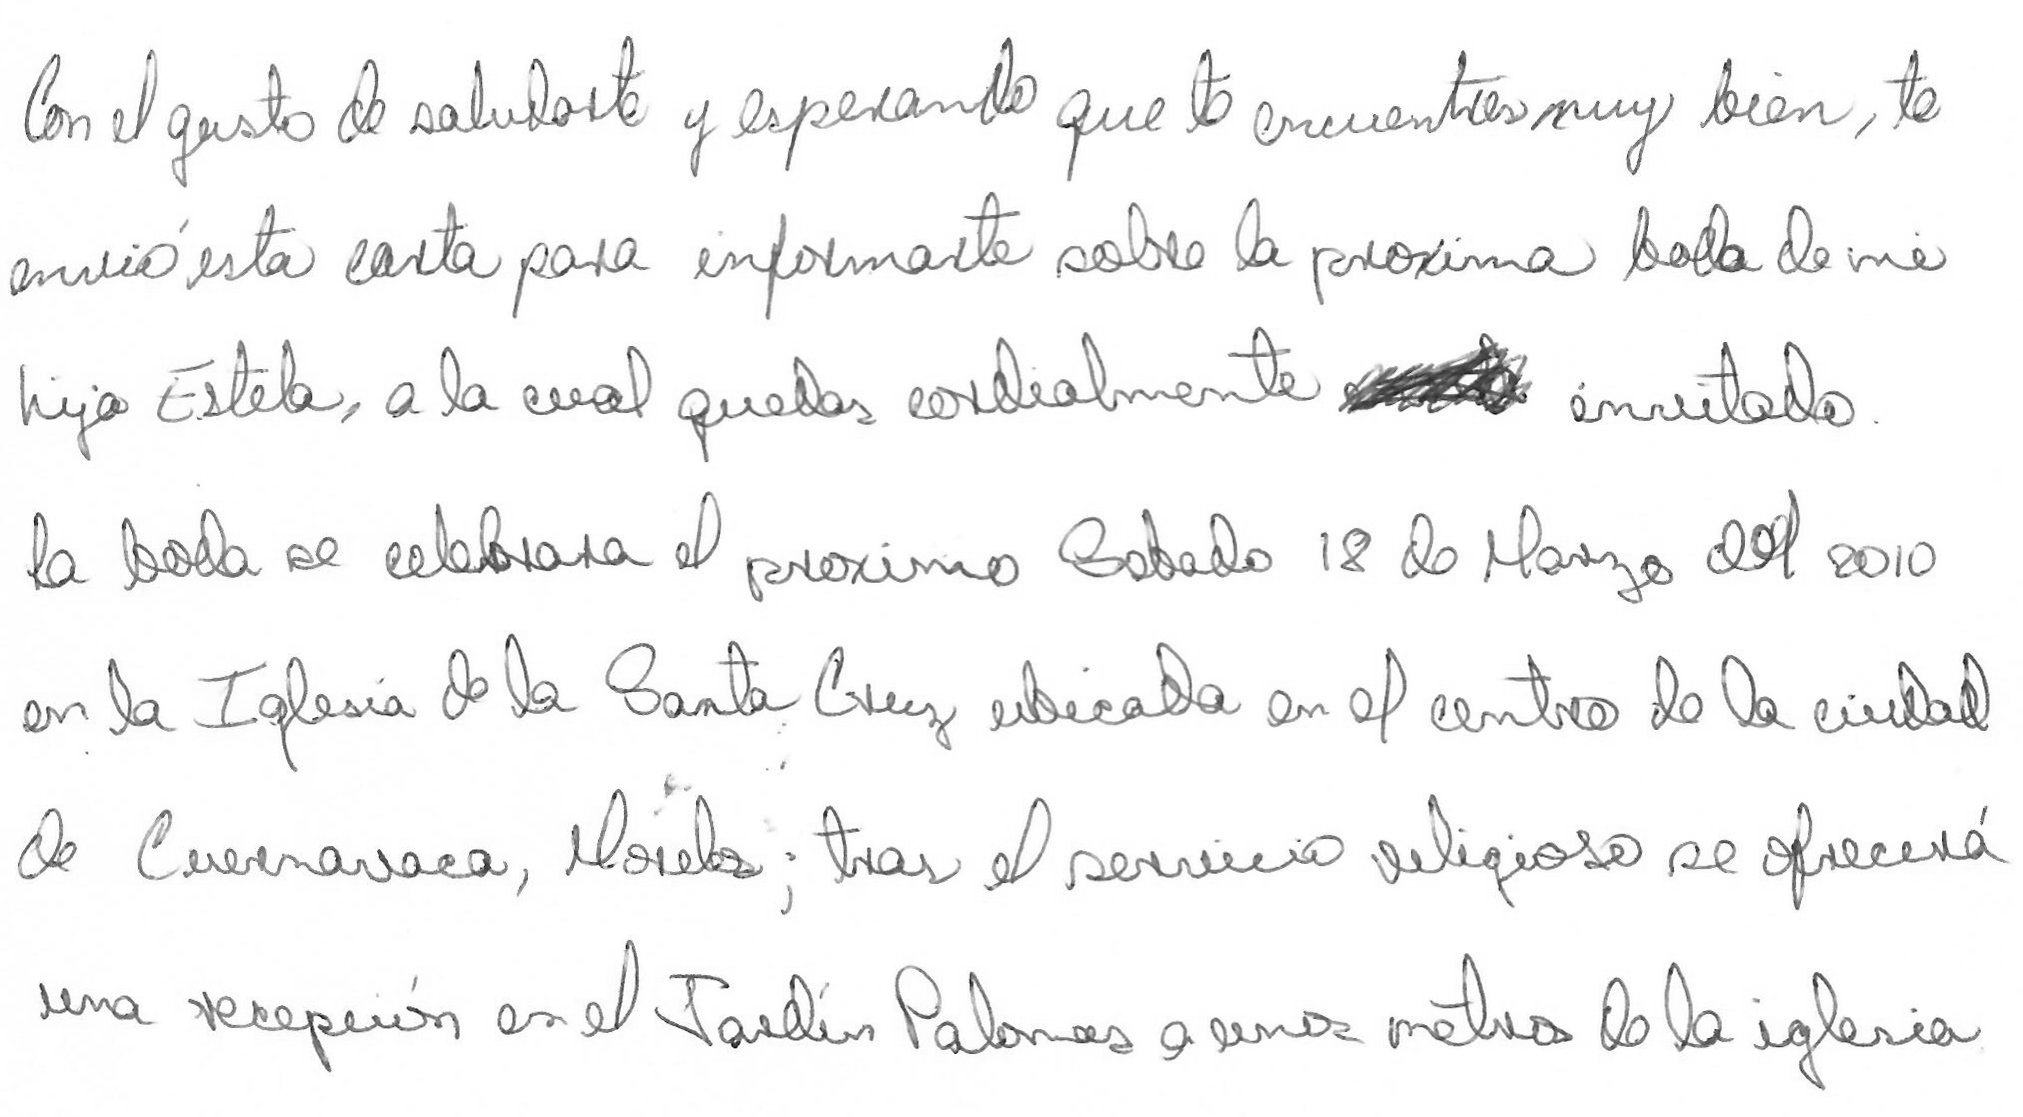 Con el gusto de saludarte y esperando que te encuentres muy bien, te
envió esta carta para informarte sobre la proxima boda de mi
hija Estela, a la cual quedas cordialmente invitado.
la boda se celebrara el proximo Sabado 18 de Marzo del 2010
en la Iglesia de la Santa Cruz ubicada en el centro de la ciudad
de Cuernavaca, Morelos; tras el servicio religioso se ofrecerá
una recepción en el Jardín Palomas a unos metros de la iglesia